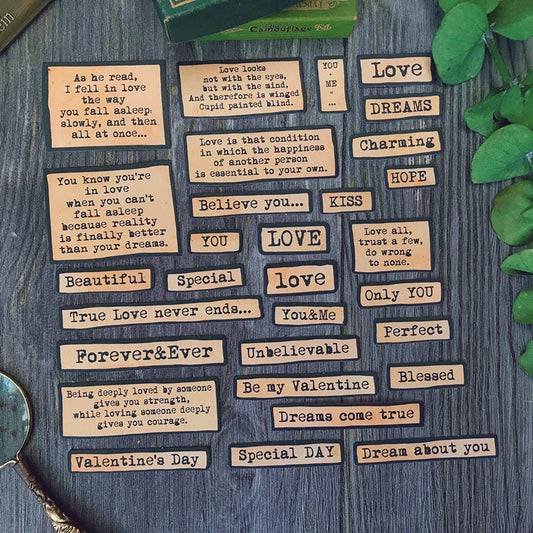 Camouflage
As he read,
I fell in love
the way
you fall asleep.
slowly, and then
all at once...
Love looks
not with the eyes,
but with the mind,
And therefore is winged
Cupid painted blind.
YOU
+
ME
=
...
Love
DREAMS
Love is that condition
in which the happiness
of another person
is essential to your own.
Charming
HOPE
You know you're
in love
when you can't
fall asleep
because reality
is finally better
than your dreams.
Believe you...
KISS
YOU
LOVE
Love all,
trust a few,
do wrong
to none.
Beautiful
Special
love
Only YOU
True Love never ends...
You&Me
Perfect
Forever&Ever
Unbelievable
Blessed
Being deeply loved by someone
gives you strength,
while loving someone deeply
gives you courage.
Be my Valentine
Dreams come true
Valentine's Day
Special DAY
Dream about you